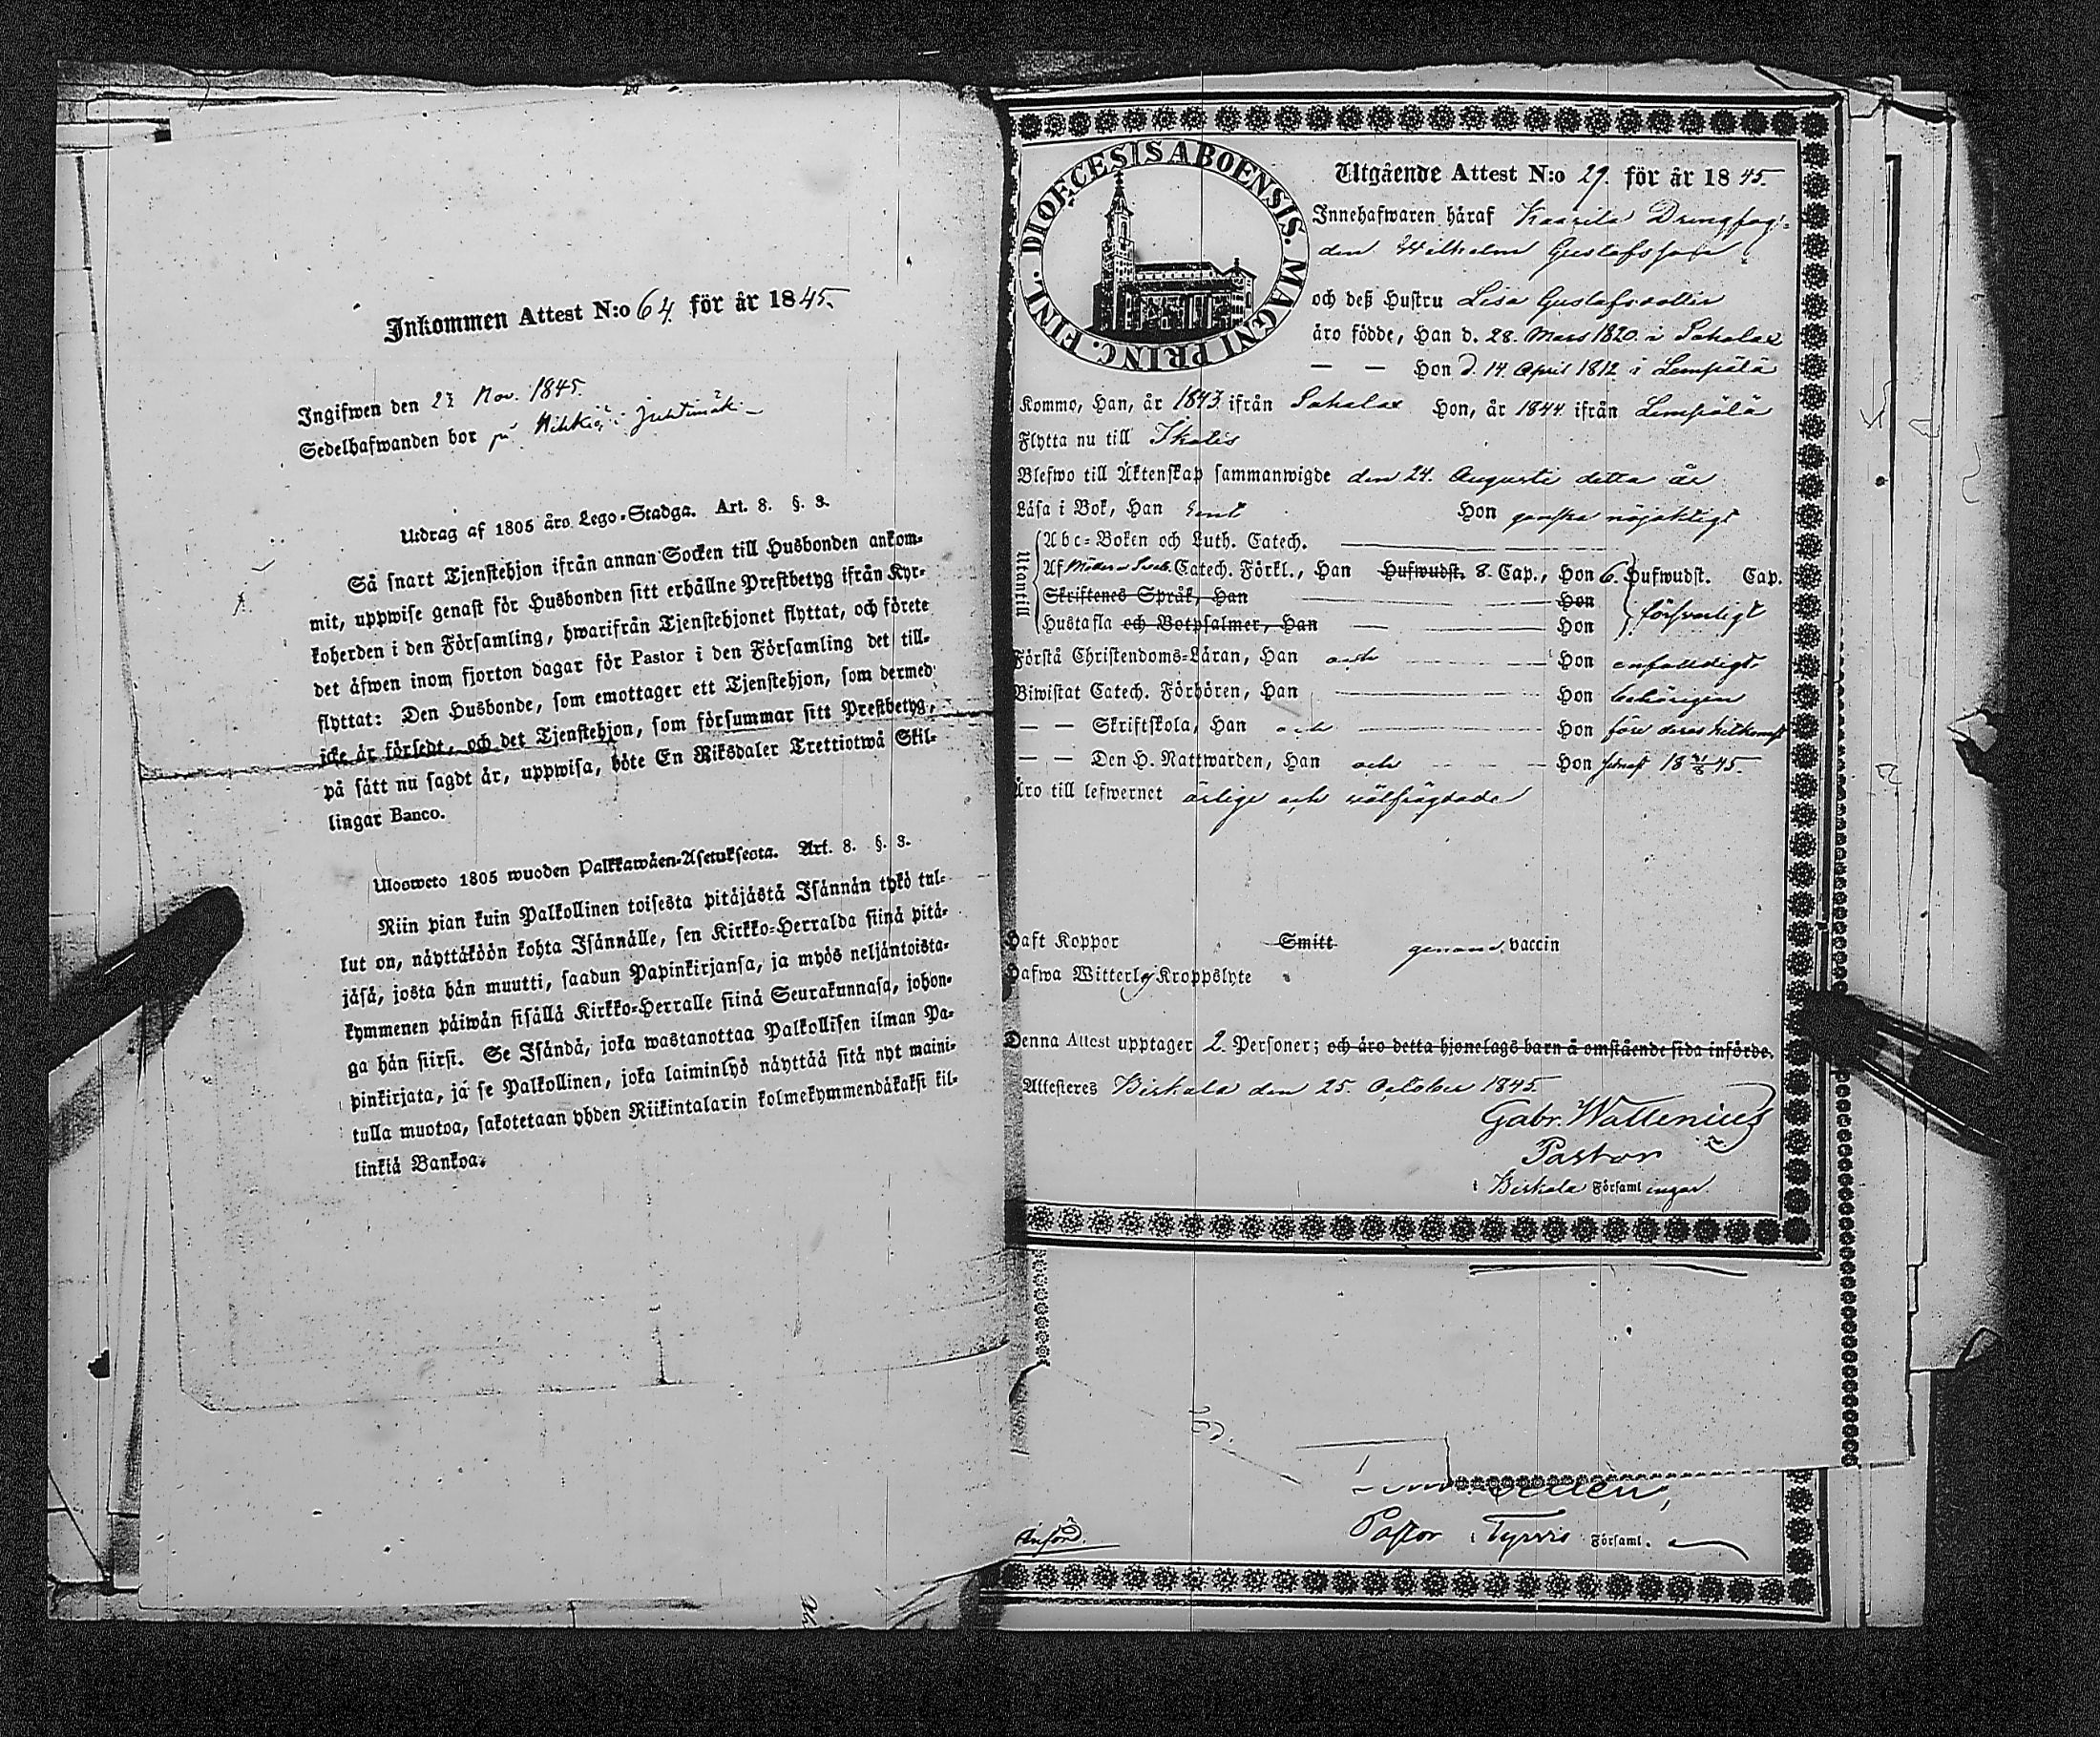 Inkommen Attest N:o 64. för år 1845.
Ingifwen den 23 Nov. 1845.
Sedelhafwanden bor på
Utdrag af 1805 års Lego-Stadga. Art. 8. §. 3.
Så snart Tjenstehjon ifrån annan Socken till Husbonden ankom-
mit, uppwise genast för Husbonden sitt erhållne Prestbetyg ifrån Kyr-
koherden i den Församling, hwarifrån Tjenstehjonet flyttat, och förete
det äfwen inom fjorton dagar för Pastor i den Församling det till-
flyttat: Den Husbonde, som emottager ett Tjenstehjon, som dermed
icke är försedt, och det Tjenstehjon, som försummar sitt Prestbetyg,
på sätt nu sagdt är, uppwisa, böte En Riksdaler Trettiotwå Skil-
lingar Banco.
Ulosweto 1805 wuoden Palkkawäen-Asetuksesta. Art. 8. §. 3.
Niin pian kuin Palkollinen toisesta pitäjästä Isännän tykö tul-
lut on, näyttäköön kohta Isännälle, sen Kirkko-Herralda siinä pitä-
jäsä, josta hän muutti, saadun Papinkirjansa, ja myös neljäntoista-
kymmenen päiwän sisällä Kirkko-Herralle siinä Seurakunnasa, johon-
ga hän siirsi. Se Isändä, joka wastanottaa Palkollisen ilman Pa-
pinkirjata, ja se Palkollinen, joka laiminlyö näyttää sitä nyt maini-
tulla muotoa, sakotetaan yhden Riikintalarin kolmekymmendäkaksi kil-
linkiä Bankoa.
DIOECESIS ABOENSIS. MAGNI PRINC. FINL.
Utgående Attest N:o 29. för år 1845.
Innehafwaren häraf Kaarila Drängfog-
den Wilhelm Gustafsson
och deß Hustru Lisa Gustafsdotter
äro födde, Han d. 28. Mars 1820. i Sahalax
— — Hon d. 14 April 1812 i Lempälä
Kommo, Han, år 1843 ifrån Sahalax Hon, år 1844 ifrån Lempälä
Flytta nu till Ikalis
Blefwo till Äktenskap sammanwigde den 24. Augusti detta år
Läsa i Bok, Han Hon ganska nöjaktigt
Utantill
Abc-Boken och Luth. Catech.
Af Catech. Förkl., Han Hufwudst. 8. Cap., Hon 6. Hufwudst. Cap.
Skriftenes Språk, Han Hon
Hustafla och Botpsalmer, Han Hon försvarligt
Förstå Christendoms-Läran, Han och Hon enfaldigt
Biwistat Catech. Förhören, Han Hon behörigen
— — Skriftskola, Han och Hon före deras hitkomst
— — Den H. Nattwarden, Han och Hon senast 18 45.
Äro till lefwernet ärlige och wälfrägdade
Haft Koppor Smitt genom vaccin
Hafwa Witterlig Kroppslyte
Denna Attest upptager 2. Personer; och äro detta hjonelags barn å omstående sida införde.
Attesteres Birkala den 25. October 1845.
Gabr. Wallenius
Pastor
i Birkala Församlingar.
Pastor i Tyrvis Församl.